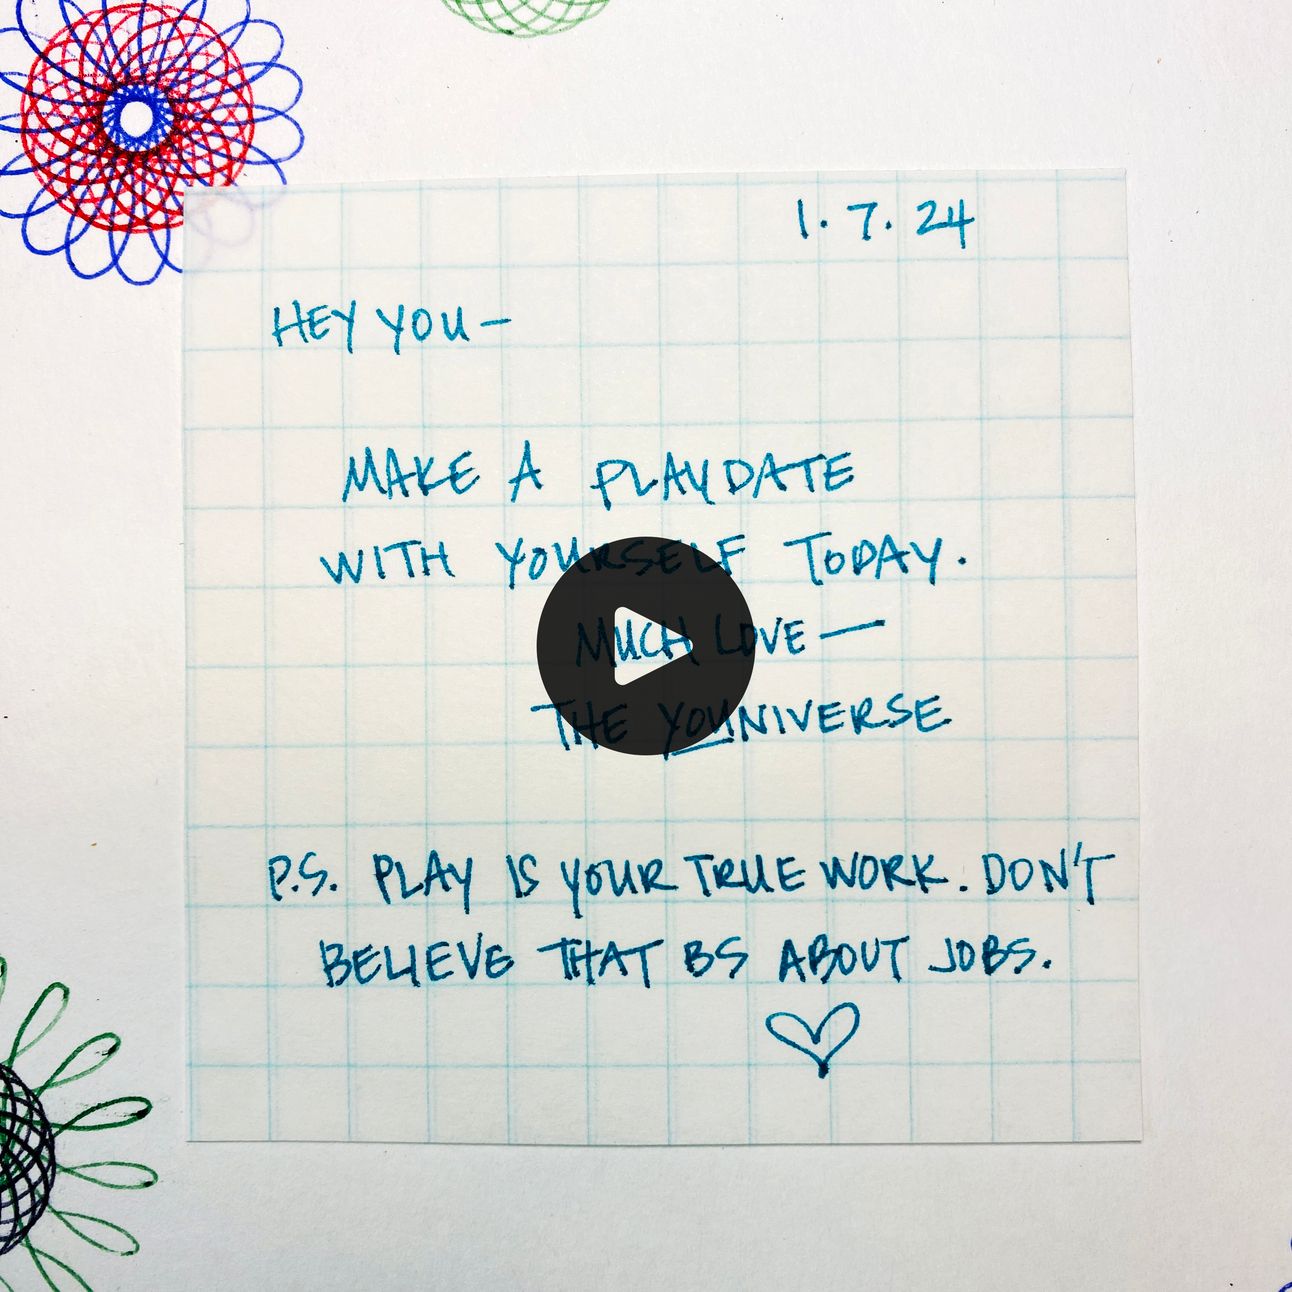 1.7.24
HEY YOU—
MAKE A PLAYDATE
WITH YOURSELF TODAY.
MUCH LOVE—
THE YOUNIVERSE
P.S. PLAY IS YOUR TRUE WORK. DON'T
BELIEVE THAT BS ABOUT JOBS.